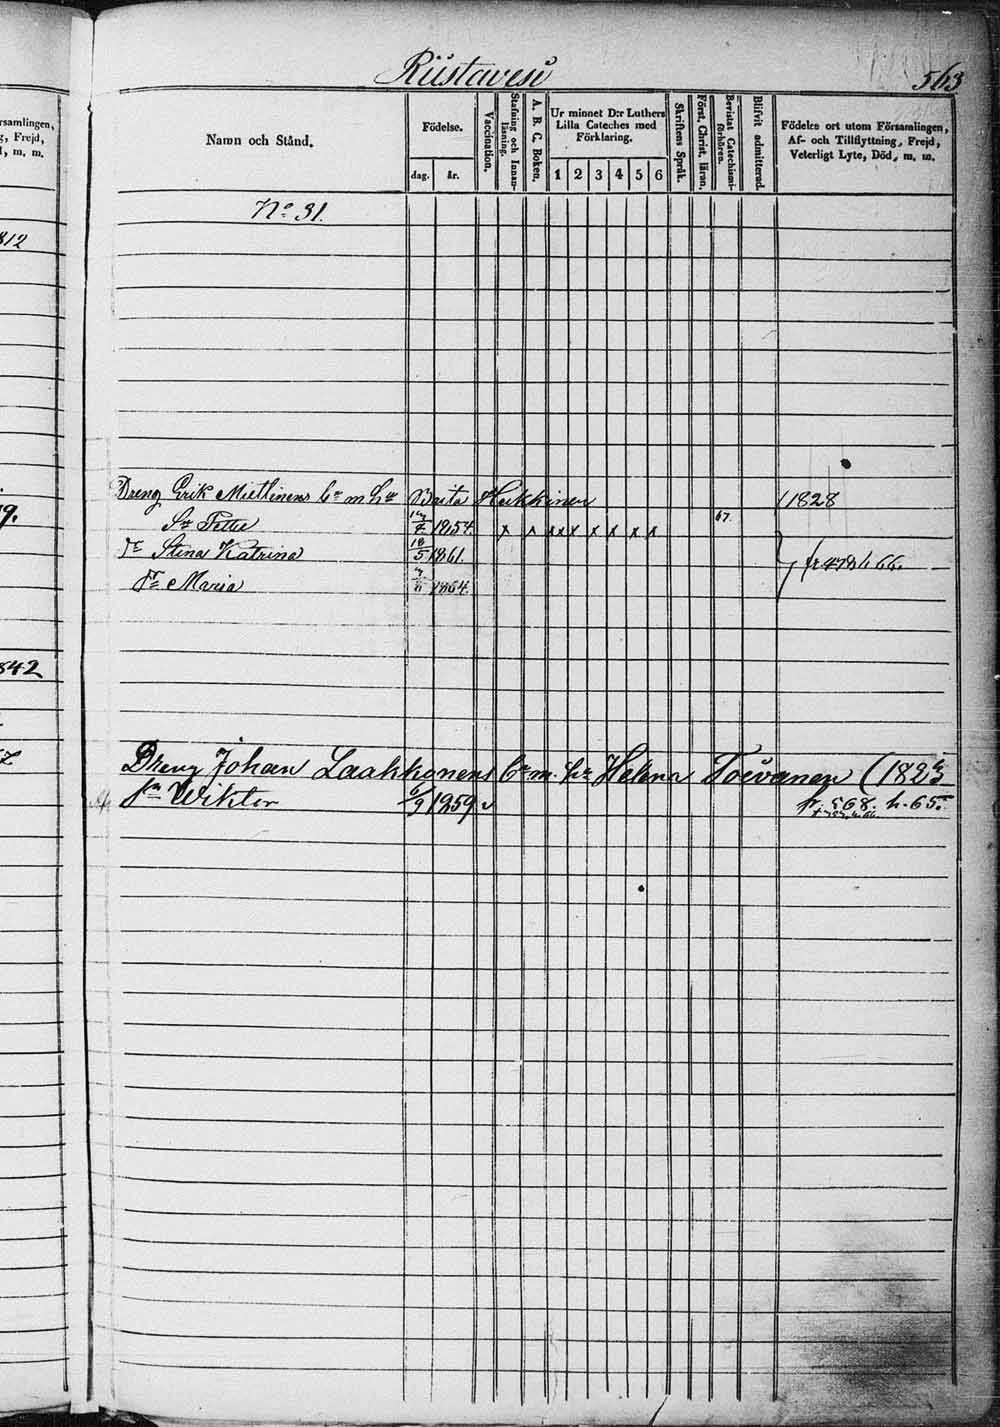 Riistavesi
563
Namn och Stånd.
Födelse.
dag.
år.
Vaccination.
Stafning och Innan-läsning.
A. B. C. Boken.
Ur minnet D:r Luthers
Lilla Cateches med
Förklaring.
1 2 3 4 5 6
Skriftens Språk.
Först. Christ. läran.
Bevistat Catechismi-förhören.
Blifvit admitterad.
Födelse ort utom Församlingen,
Af- och Tillflyttning, Frejd,
Veterligt Lyte, Död, m. m.
No 31.
Dreng Erik Miettinens bn m hu Brita Heikkinen 1828
Sn Petter 1854. x x x x x x x x x 67.
Dr Stina Katrina 18/5 1861. 66.
Dr Maria 1864.
Dreng Johan Laakkonens bn m. hu Helena Toivanen (1823
sn Wiktor 6/9 1859 v fr. 568. h. 65.
rsamlingen,
g, Frejd,
l, m. m.
812
9.
842